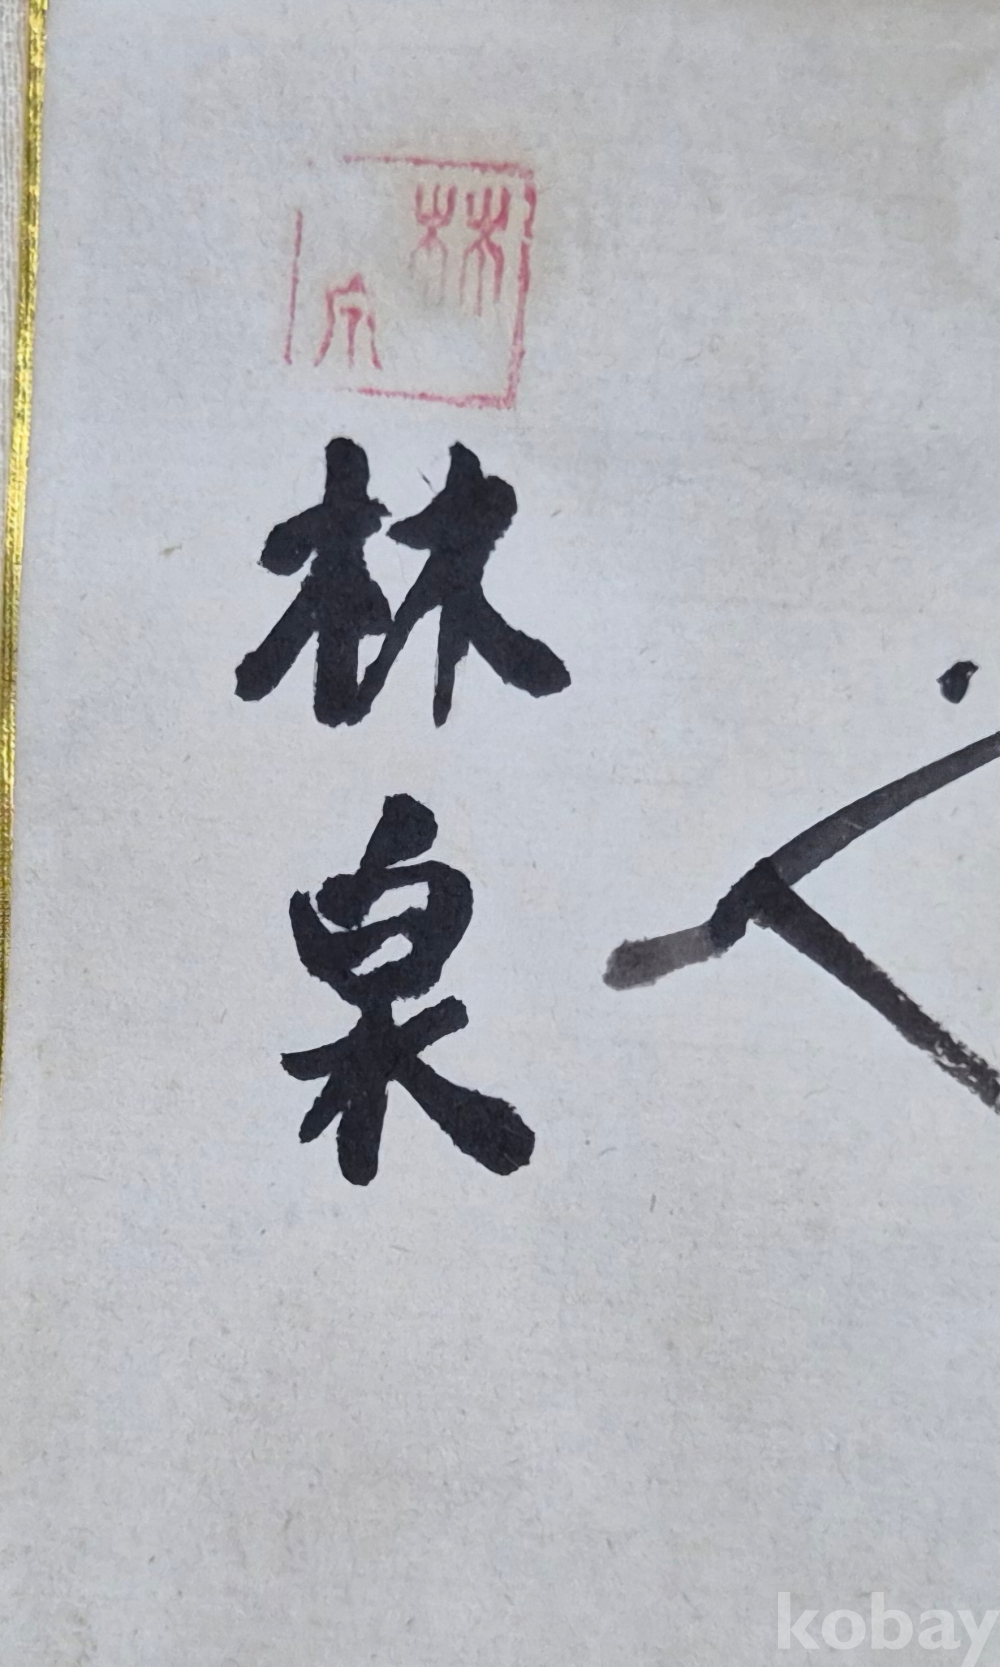 林泉
林泉
kobay